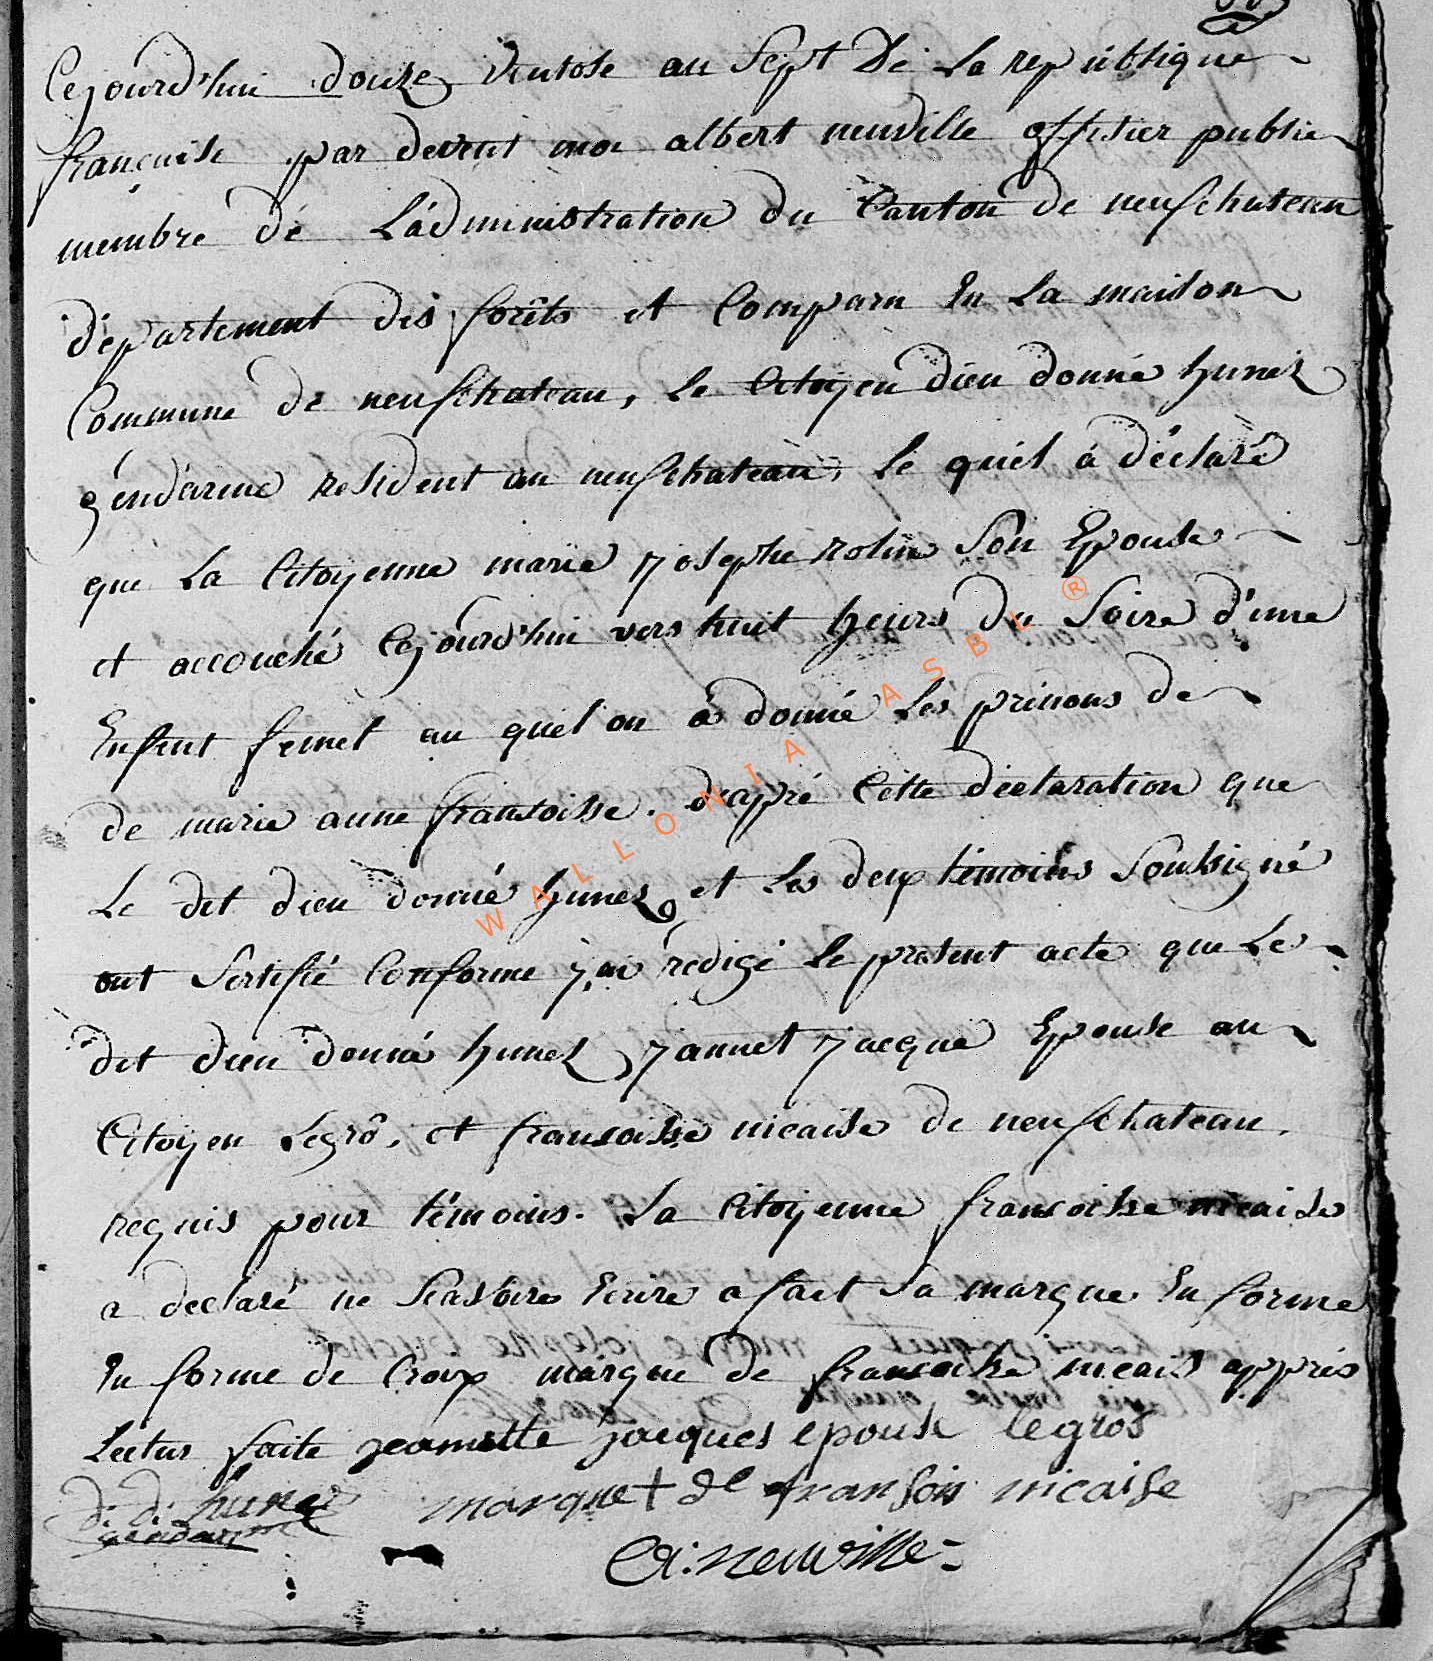 Cejourd'hui douze ventose an Sept De La republique
françoise par devent moi albert neuville offisier public
membre de L'administration du Canton de neufchateau
département des forêts et Comparu En La maison
Commune de neufchateau, Le Citoyen dieu donné hunez
géndarme resident au neufchateau, Le quiel a déclaré
que La Citoyenne marie josephe rolin Son Epouse
et accouché Cejourd'hui vers huit heurs du Soire d'une
Enfent femel au quel on à donné Les prinons de
de marie anne fransoisse. d'appré Cette déclaration que
Le dit dieu donné hunez et Les deux témoins Soussigné
ont Sertifié Conforme j'ai rédigé Le present acte que Le
dit dieu donné hunez, jannet jacque Epouse au
Citoyen Legrô, et fransoisse nicaise de neufchateau.
requis pour témoins. La Citoyenne fransoisse nicaise
a declaré ne Scavoire Ecrire a fait Sa marque En forme
En forme de Croix marque de fransoise nicais appres
Lectur faite jeannette jacques epouse legros
d: d: hunez marque + de fransois nicaise
gendarme
A: neuville
WALLONIA ASBL ®